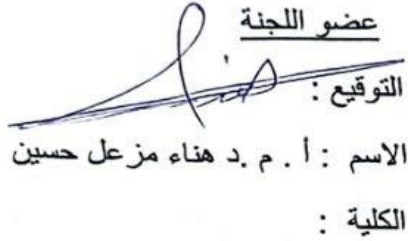 عضو اللجنة
التوقيع :
الاسم : أ . م .د هناء مزعل حسين
الكلية :